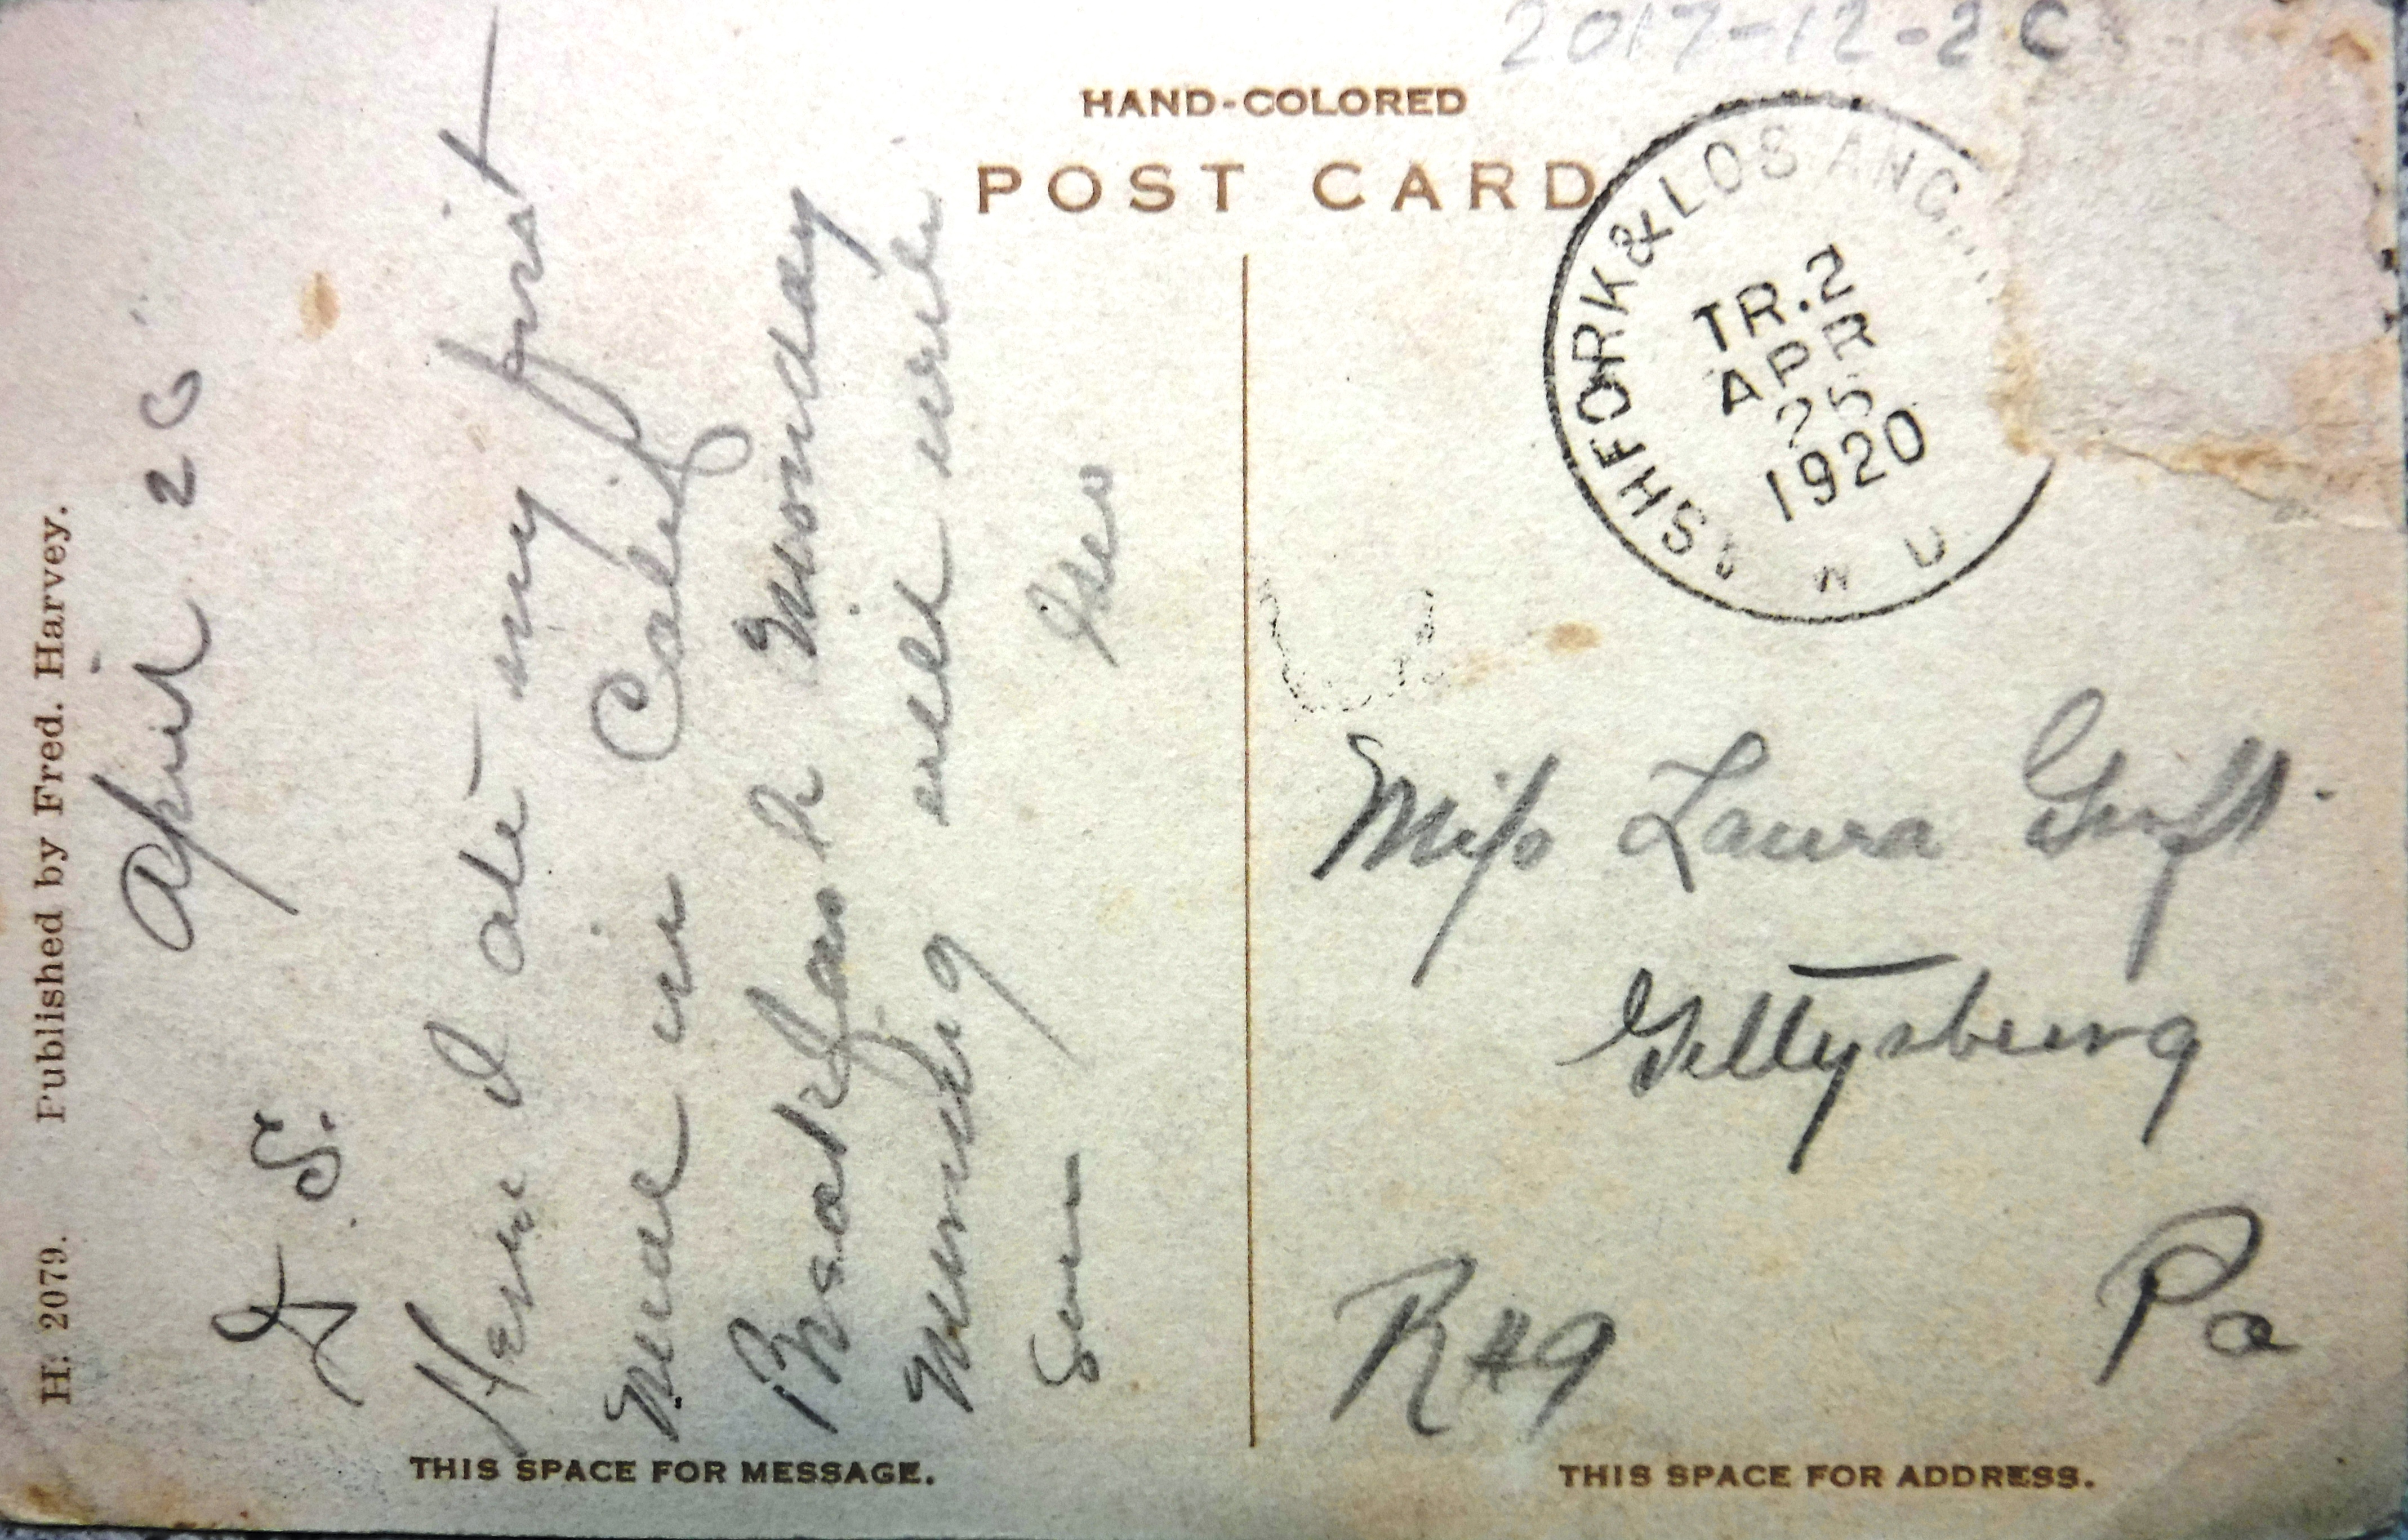 2017-12-2C
HAND-COLORED
POST CARD
SHFORK & LOS ANG
TR. 2
APR
25
1920
H. 2079. Published by Fred. Harvey.
April 26
L. G.
Here I ate my first
meal in Calif
Breakfast Monday
Morning will write
soon Geo
Miss Laura
Gettysburg
R#9 Pa
THIS SPACE FOR MESSAGE.
THIS SPACE FOR ADDRESS.